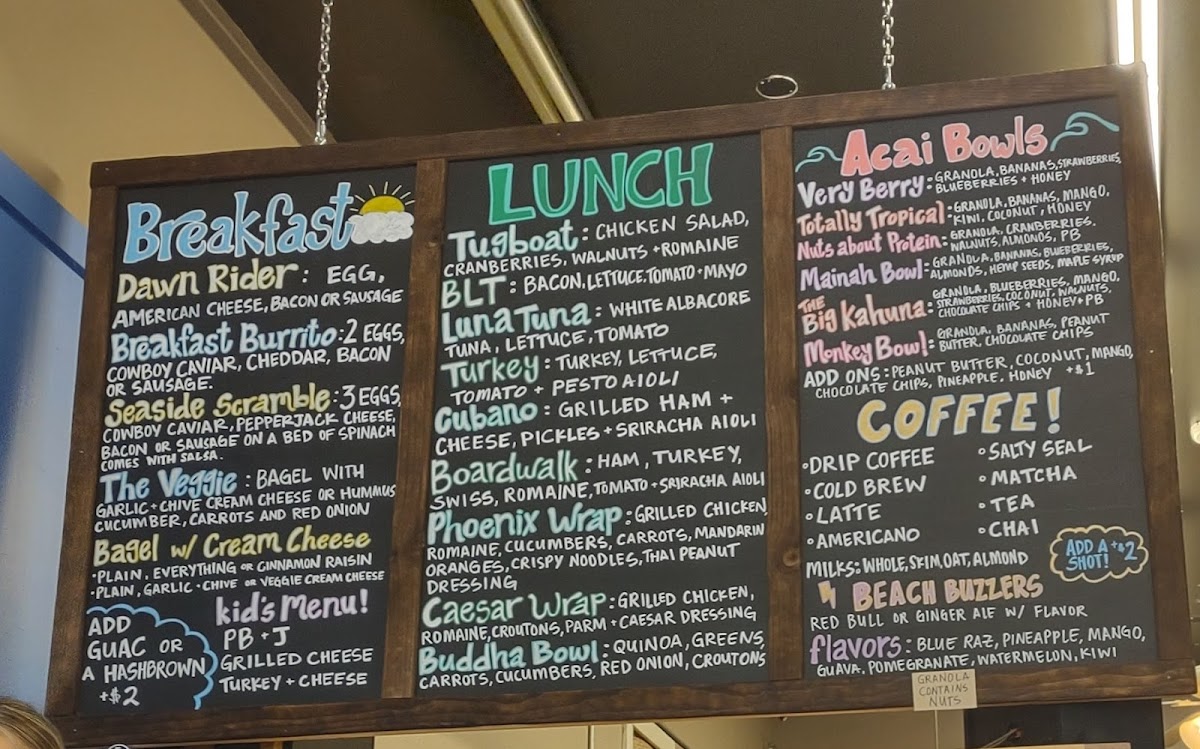 Breakfast
Dawn Rider: EGG,
AMERICAN CHEESE, BACON OR SAUSAGE
Breakfast Burrito: 2 EGGS,
COWBOY CAVIAR, CHEDDAR, BACON
OR SAUSAGE.
Seaside Scramble: 3 EGGS,
COWBOY CAVIAR, PEPPERJACK CHEESE,
BACON OR SAUSAGE ON A BED OF SPINACH
COMES WITH SALSA.
The Veggie: BAGEL WITH
GARLIC + CHIVE CREAM CHEESE OR HUMMUS
CUCUMBER, CARROTS AND RED ONION
Bagel w/ Cream Cheese
• PLAIN, EVERYTHING OR CINNAMON RAISIN
• PLAIN, GARLIC + CHIVE OR VEGGIE CREAM CHEESE
ADD
GUAC OR
A HASHBROWN
+$2
kid's Menu!
PB + J
GRILLED CHEESE
TURKEY + CHEESE
LUNCH
Tugboat: CHICKEN SALAD,
CRANBERRIES, WALNUTS + ROMAINE
BLT: BACON, LETTUCE, TOMATO + MAYO
Luna Tuna: WHITE ALBACORE
TUNA, LETTUCE, TOMATO
Turkey: TURKEY, LETTUCE,
TOMATO + PESTO AIOLI
Cubano: GRILLED HAM +
CHEESE, PICKLES + SRIRACHA AIOLI
Boardwalk: HAM, TURKEY,
SWISS, ROMAINE, TOMATO + SRIRACHA AIOLI
Phoenix Wrap: GRILLED CHICKEN
ROMAINE, CUCUMBERS, CARROTS, MANDARIN
ORANGES, CRISPY NOODLES, THAI PEANUT
DRESSING
Caesar Wrap: GRILLED CHICKEN,
ROMAINE, CROUTONS, PARM + CAESAR DRESSING
Buddha Bowl: QUINOA, GREENS,
CARROTS, CUCUMBERS, RED ONION, CROUTONS
Acai Bowls
Very Berry: GRANOLA, BANANAS, STRAWBERRIES,
BLUEBERRIES + HONEY
Totally Tropical: GRANOLA, BANANAS, MANGO,
KIWI, COCONUT, HONEY
Nuts about Protein: GRANOLA, CRANBERRIES,
WALNUTS, ALMONDS, PB
Mainah Bowl: GRANOLA, BANANAS, BLUEBERRIES,
ALMONDS, HEMP SEEDS, MAPLE SYRUP
THE Big Kahuna: GRANOLA, BLUEBERRIES, MANGO,
STRAWBERRIES, COCONUT, WALNUTS,
CHOCOLATE CHIPS + HONEY + PB
Monkey Bowl: GRANOLA, BANANAS, PEANUT
BUTTER, CHOCOLATE CHIPS
ADD ONS: PEANUT BUTTER, COCONUT, MANGO,
CHOCOLATE CHIPS, PINEAPPLE, HONEY +$1
COFFEE!
• DRIP COFFEE
• COLD BREW
• LATTE
• AMERICANO
• SALTY SEAL
• MATCHA
• TEA
• CHAI
MILKS: WHOLE, SKIM, OAT, ALMOND
ADD A +$2
SHOT!
BEACH BUZZERS
RED BULL OR GINGER ALE W/ FLAVOR
flavors: BLUE RAZ, PINEAPPLE, MANGO,
GUAVA, POMEGRANATE, WATERMELON, KIWI
GRANOLA
CONTAINS
NUTS